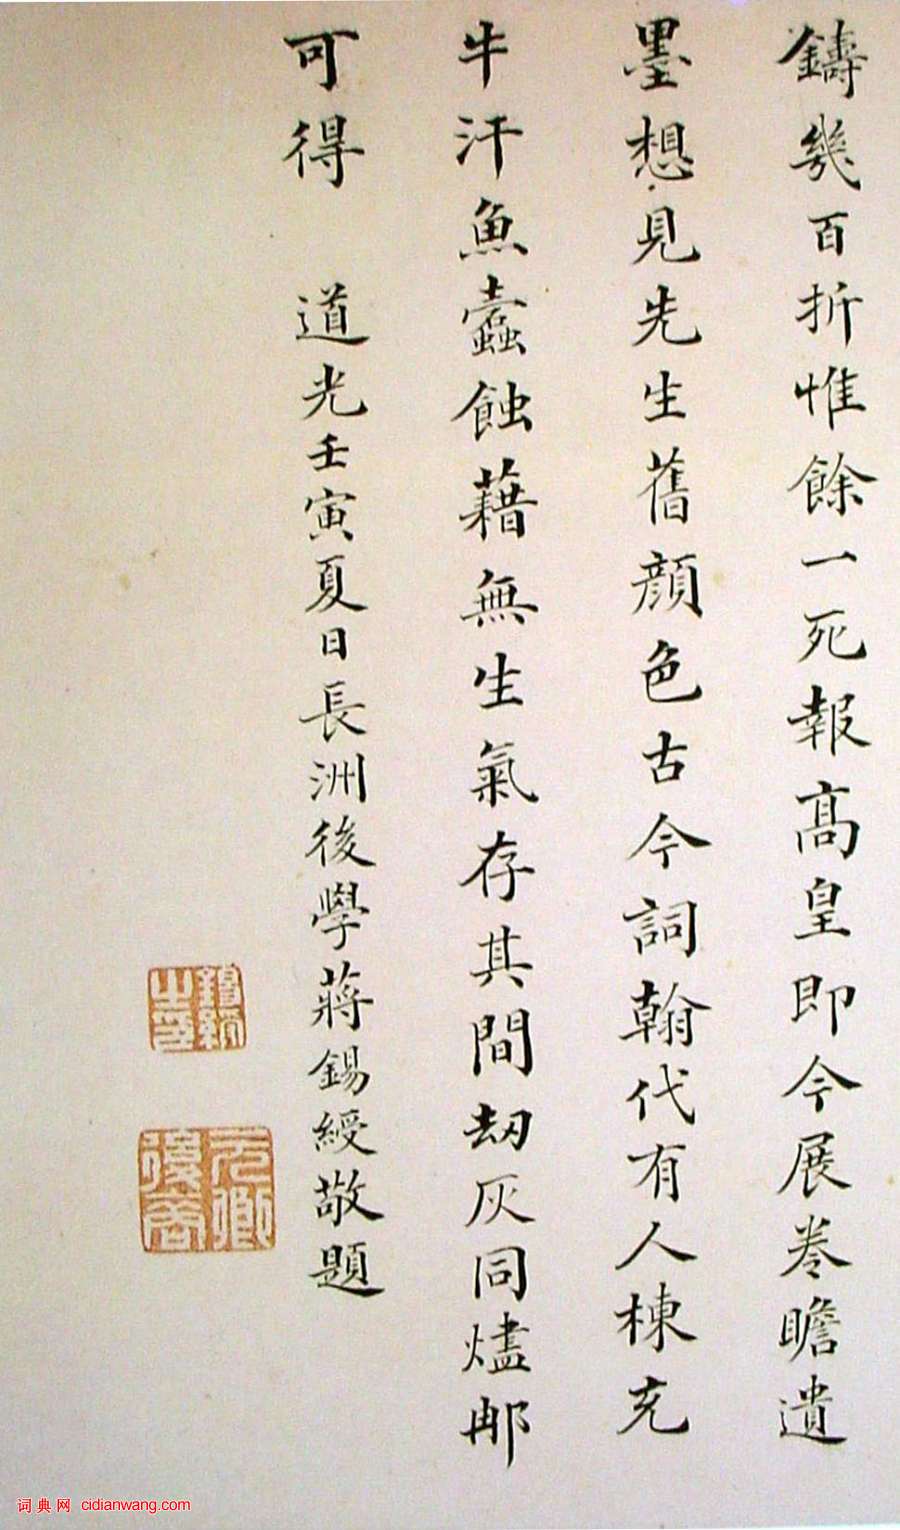 鑄幾百折惟餘一死報高皇即今展卷瞻遺
墨想見先生舊顏色古今詞翰代有人棟充
牛汗魚蠹蝕藉無生氣存其間劫灰同燼那
可得　道光壬寅夏日長洲後學蔣錫綬敬題
錫綬之印
元卿
词典网 cidianwang.com